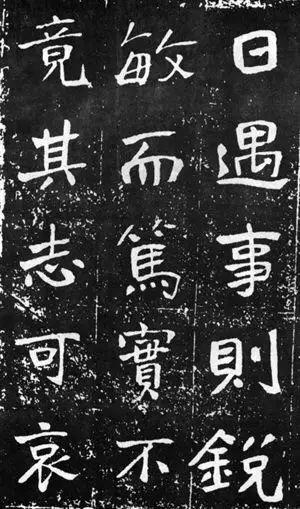 日遇事則銳
敏而篤實不
竟其志可哀